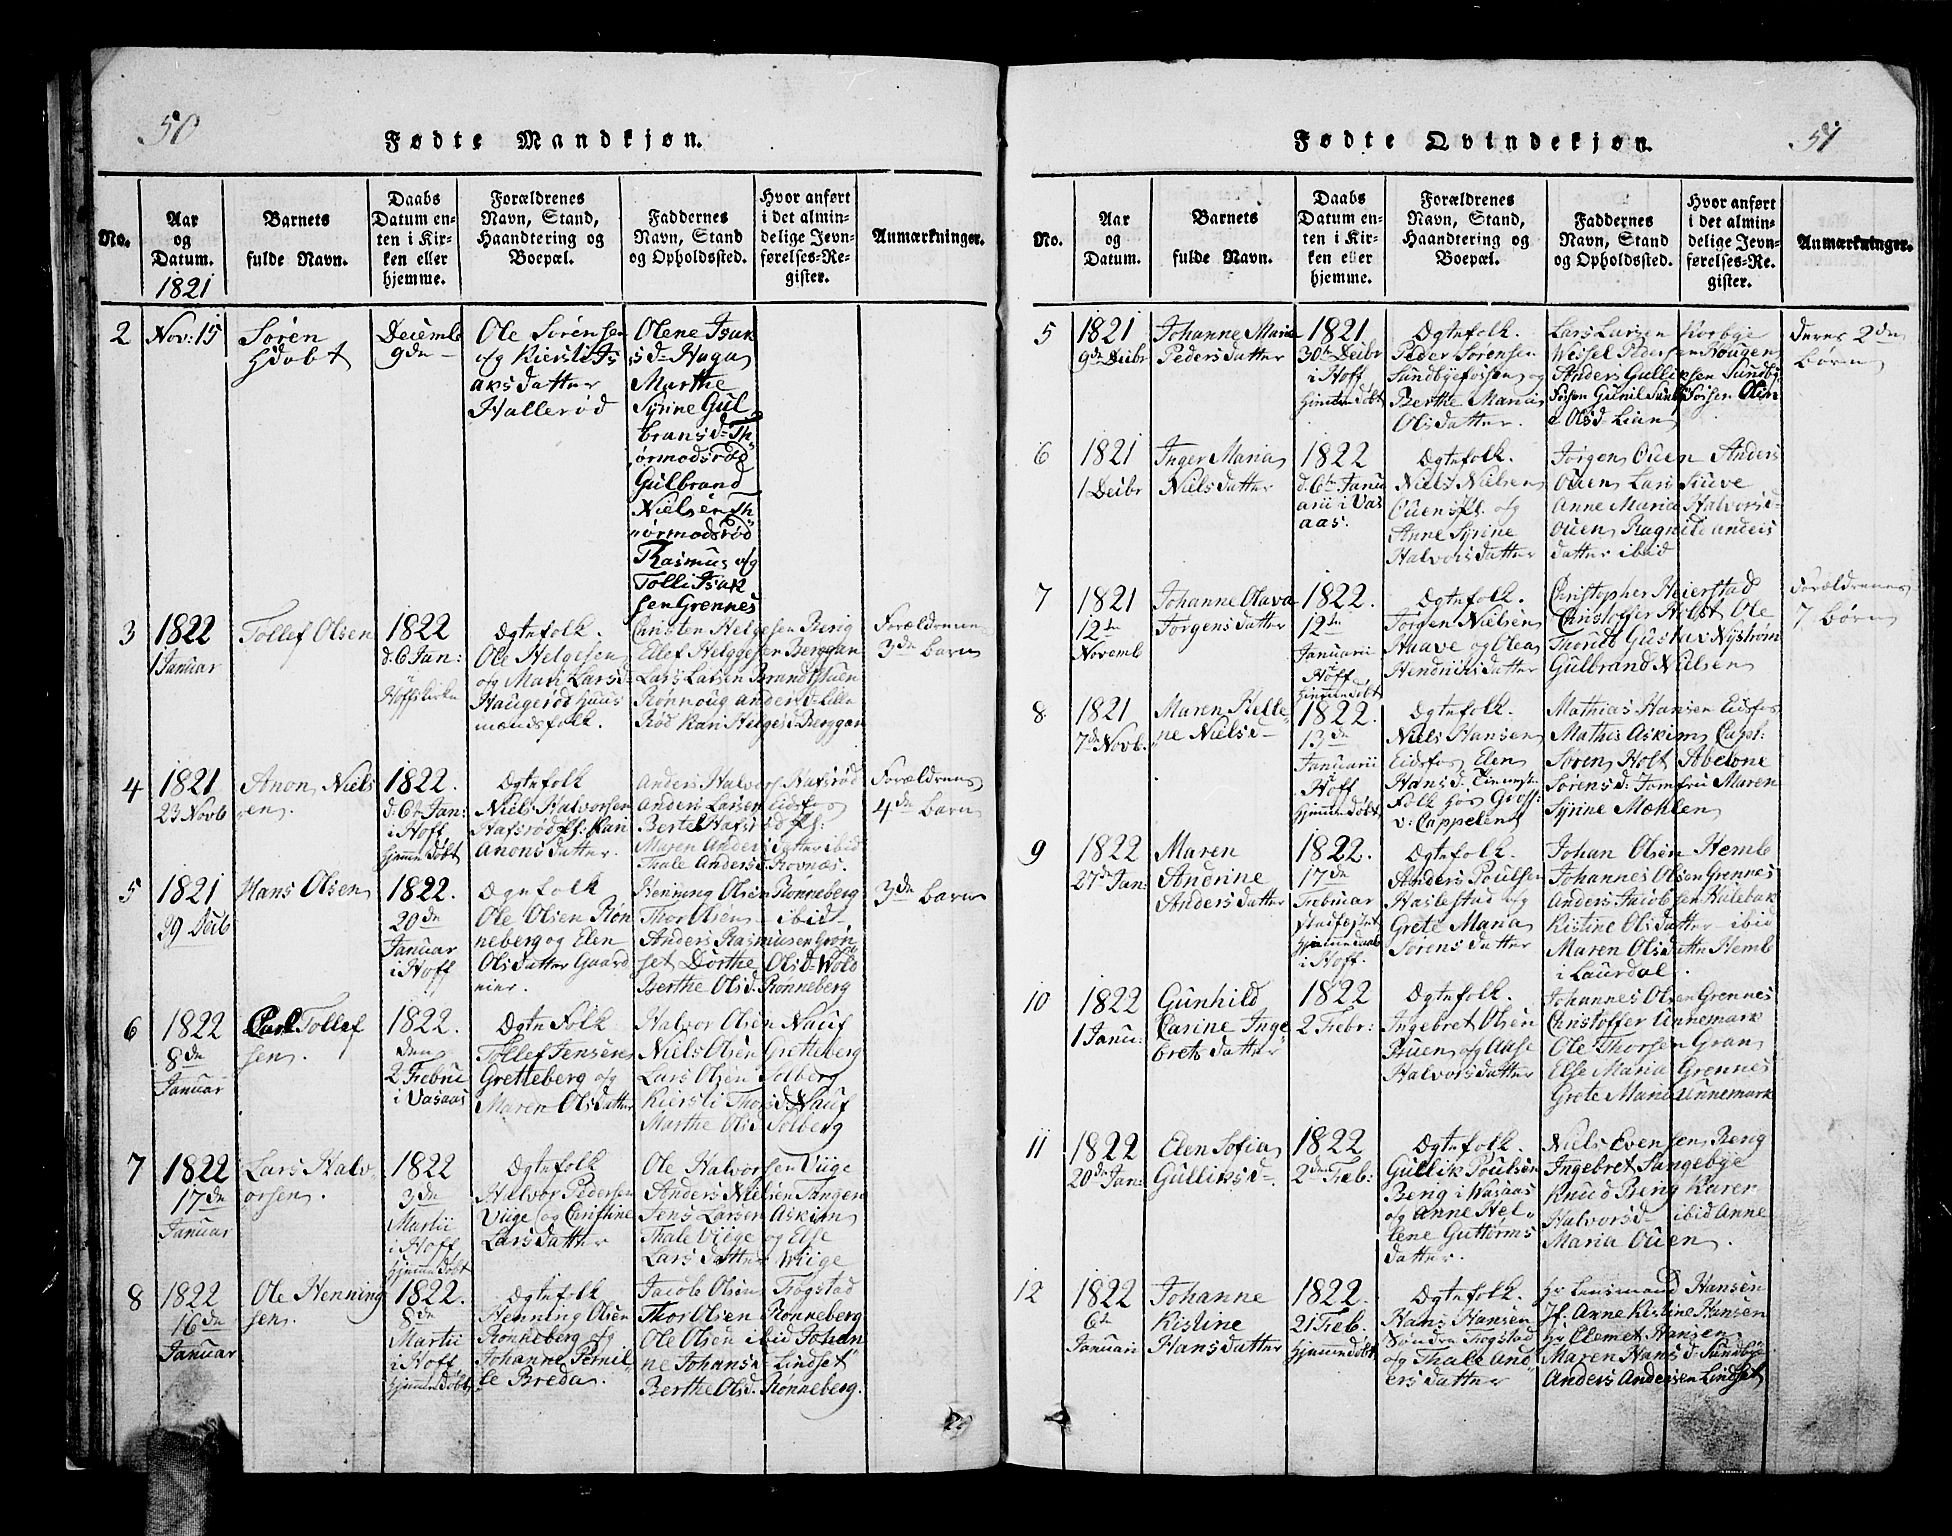 50
Fødte Mandkjøn.
No.
Aar
og
Datum.
1821
Barnets
fulde Navn.
Daabs
Datum en-
ten i Kir-
ken eller
hjemme.
Forældrenes
Navn, Stand,
Haandtering og
Boepæl.
Faddernes
Navn, Stand
og Opholdssted.
Hvor anført
i det almin-
delige Jevn-
førelses-Re-
gister.
Anmærkninger.
2
Nov: 15
Søren
Hdøbt
Decemb
9de
Ole Sørensen
og Kiersti Is
aksdatter
Hallerød
Olene Isak
sd Haga
Marthe
Syrine Gul
bransd Th
ormodsrød
Gulbrand
Nielsen Th
ormodsrød
Rasmus og
Tolli Isak
sen Grennes
3
1822
1 Januar
Tollef Olsen
1822
d. 6 Jan:
i
Hoffs Kirke
Ægtefolk.
Ole Helgesen
og Mari Larsd
Haugerød Huus
mandsfolk.
Christen Helgesen Berig
Ellef Helggesen Berggan
Lars Larsen Brandtstuen
Rønnoug andersd Elle
Rød Kari Helgesd Berggan
Forældrenes
3de barn
4
1821
23 Novb
Anon Niels
en.
1822.
d. 6te Jan:
i Hoff
hjemmedøbt
Ægtefolk
Niels Halvorsen
Hafsrød Pl: Kari
Anonsdatter.
Anders Halvors Hafsrød
Anders Larsen Eidsfos
Bertel Hafsrød Pl:
Maren Andersdatter ibid
Thale Andersd Rovnæs.
Forældrenes
4de barn
5
1821
29 Deib
Hans Olsen
1822.
20de
Januar
i Hoff
Ægtefolk
Ole Olsen Røn
neberg og Elen
Olsdatter Gaard
eier.
Henning Olsen Rønneberg
Thor Olsen ibid
Anders Rasmusen Grøn
set Dorthe Olsd Wold
Berthe Olsd. Rønneberg
3de barn
6
1822
8de
Januar
Carl Tollef
sen.
1822.
den
2 Febru
i Vasaas
Ægtefolk
Tollef Jensen
Gretteberg og
Maren Olsdatter
Halvor Olsen Nauf
Niels Olsen Gretteberg
Lars Olsen Solberg
Kiersti Thorsd. Nauf
Marthe Olsd Solberg
7
1822
17de
Januar
Lars Halv
orsen.
1822
3de
Martii
i Hoff
hjemmedøbt
Ægtefolk
Halvor Pedersen
Viige og Christine
Larsdatter
Ole Halvorsen Viige
Anders Nielsen Tangen
Jens Larsen Askim
Thale Viige og Else
Larsdatter Wiige
8
1822
16de
Januar
Ole Henning
sen.
1822.
8de
Martii
i Hoff
hjemmedøbt
Ægtefolk
Henning Olsen
Rønneberg og
Johanne Pernil
le Breda.
Jacob Olsen Frøgstad
Thor Olsen Rønneberg
Ole Olsen ibid Johan
ne Johansd Lindset
Berthe Olsd. Rønneberg.
51
Fødte Qvindekjøn.
No.
Aar
og
Datum.
Barnets
fulde Navn.
Daabs
Datum en-
ten i Kir-
ken eller
hjemme.
Forældrenes
Navn, Stand,
Haandtering og
Boepæl.
Faddernes
Navn, Stand
og Opholdssted.
Hvor anført
i det almin-
delige Jevn-
førelses-Re-
gister.
Anmærkninger.
5
1821
9de Deibr
Johanne Marie
Pedersdatter
1821
30te Deibr
i Hoff
hjemmedøbt
Ægtefolk.
Peder Sørensen
Sundbyefossen og
Berthe Maria
Olsdatter.
Lars Larsen Korbye
Wessel Pedersen Hougen
Anders Gulliksen Sundby
Fossen Gunil Sundbyfossen Olen
e Olsd. Lian
deres 2de
børn
6
1821
1 Deibr
Inger Maria
Nielsdatter
1822
d. 6te Janu
arii i Vas
aas.
Ægtefolk.
Niels Nielsen
Ouens Pl. og
Anne Syrine
Halvorsdatter
Jørgen Ouen Anders
Ouen Lars Stuve
Anne Maria Halvorsd
Ouen Ragnild anders
datter ibid
7
1821
12te
Novemb
Johanne Olava
Jørgensdatter
1822.
12te
Januarii
i
Hoff
hjemmedøbt
Ægtefolk.
Jørgen Nielsen
Haave og Olea
Hendriksdatter
Christopher Heierstad
Christoffer Holst Ole
Thorud Gustav Nystrøm
Gulbrand Nielsen
Forældrenes
7 børn
8
1821
7de Novb.
Maren Helle
ne Nielsd
1822.
13de
Januarii
i
Hoff
hjemmedøbt
Ægtefolk
Niels Hansen
Eidsfos Elen
Hansd. Tieneste
Folk hos Gross:
v: Cappelen
Mathias Hansen Eidsfos
Mathis Askim Capt:
Søren Holt Abelone
Sørensd: Jomfru Maren
Syrine Mæhlen
9
1822
27de Jan:
Maren
Andrine
Andersdatter
1822.
17de
Februar
hjemmedaab
i Hoff.
Ægtefolk.
Anders Poulsen
Haslestad og
Grete Maria
Sørensdatter
Johan Olsen Hemb
Johannes Olsen Grennes
Anders Jacobsen Kalebak
Kistine Olsdatter ibid
Maren Olsdatter Hemb
i Laurdal.
10
1822
1 Janu:
Gunhild
Carine Inge
bretsdatter
1822
2 Febr:
Ægtefolk.
Ingebret Olsen
Buen og Aase
Halvorsdatter
Johannes Olsen Grennes
Christoffer Unnemark
Ole Thorsen Gran
Else Maria Grennes
Grete Maria Unnemark
11
1822
20de Jan:
Elen Sofia
Gulliksd
1822
2de Feb:
Ægtefolk.
Gullik Poulsen
Berig i Wasaas
og Anne Hel
lene Guttorms
datter.
Niels Evensen Berig
Ingebret Langebye
Knud Berig Karen
Halvorsd ibid Anne
Maria Ouen.
12
1822
6te
Januari
Johanne
Kistine
Hansdatter
1822.
21 Feb.
hjemmedøbt
Ægtefolk.
Hans Hansen
Søndre Frøgstad
og Thale And
ersdatter
Hr Lensmand Hansen
Jf. Anne Kistine Hansen
Hr Clemet Hansen
Maren Hansd. Sundbye
Anders Andersen Lindset